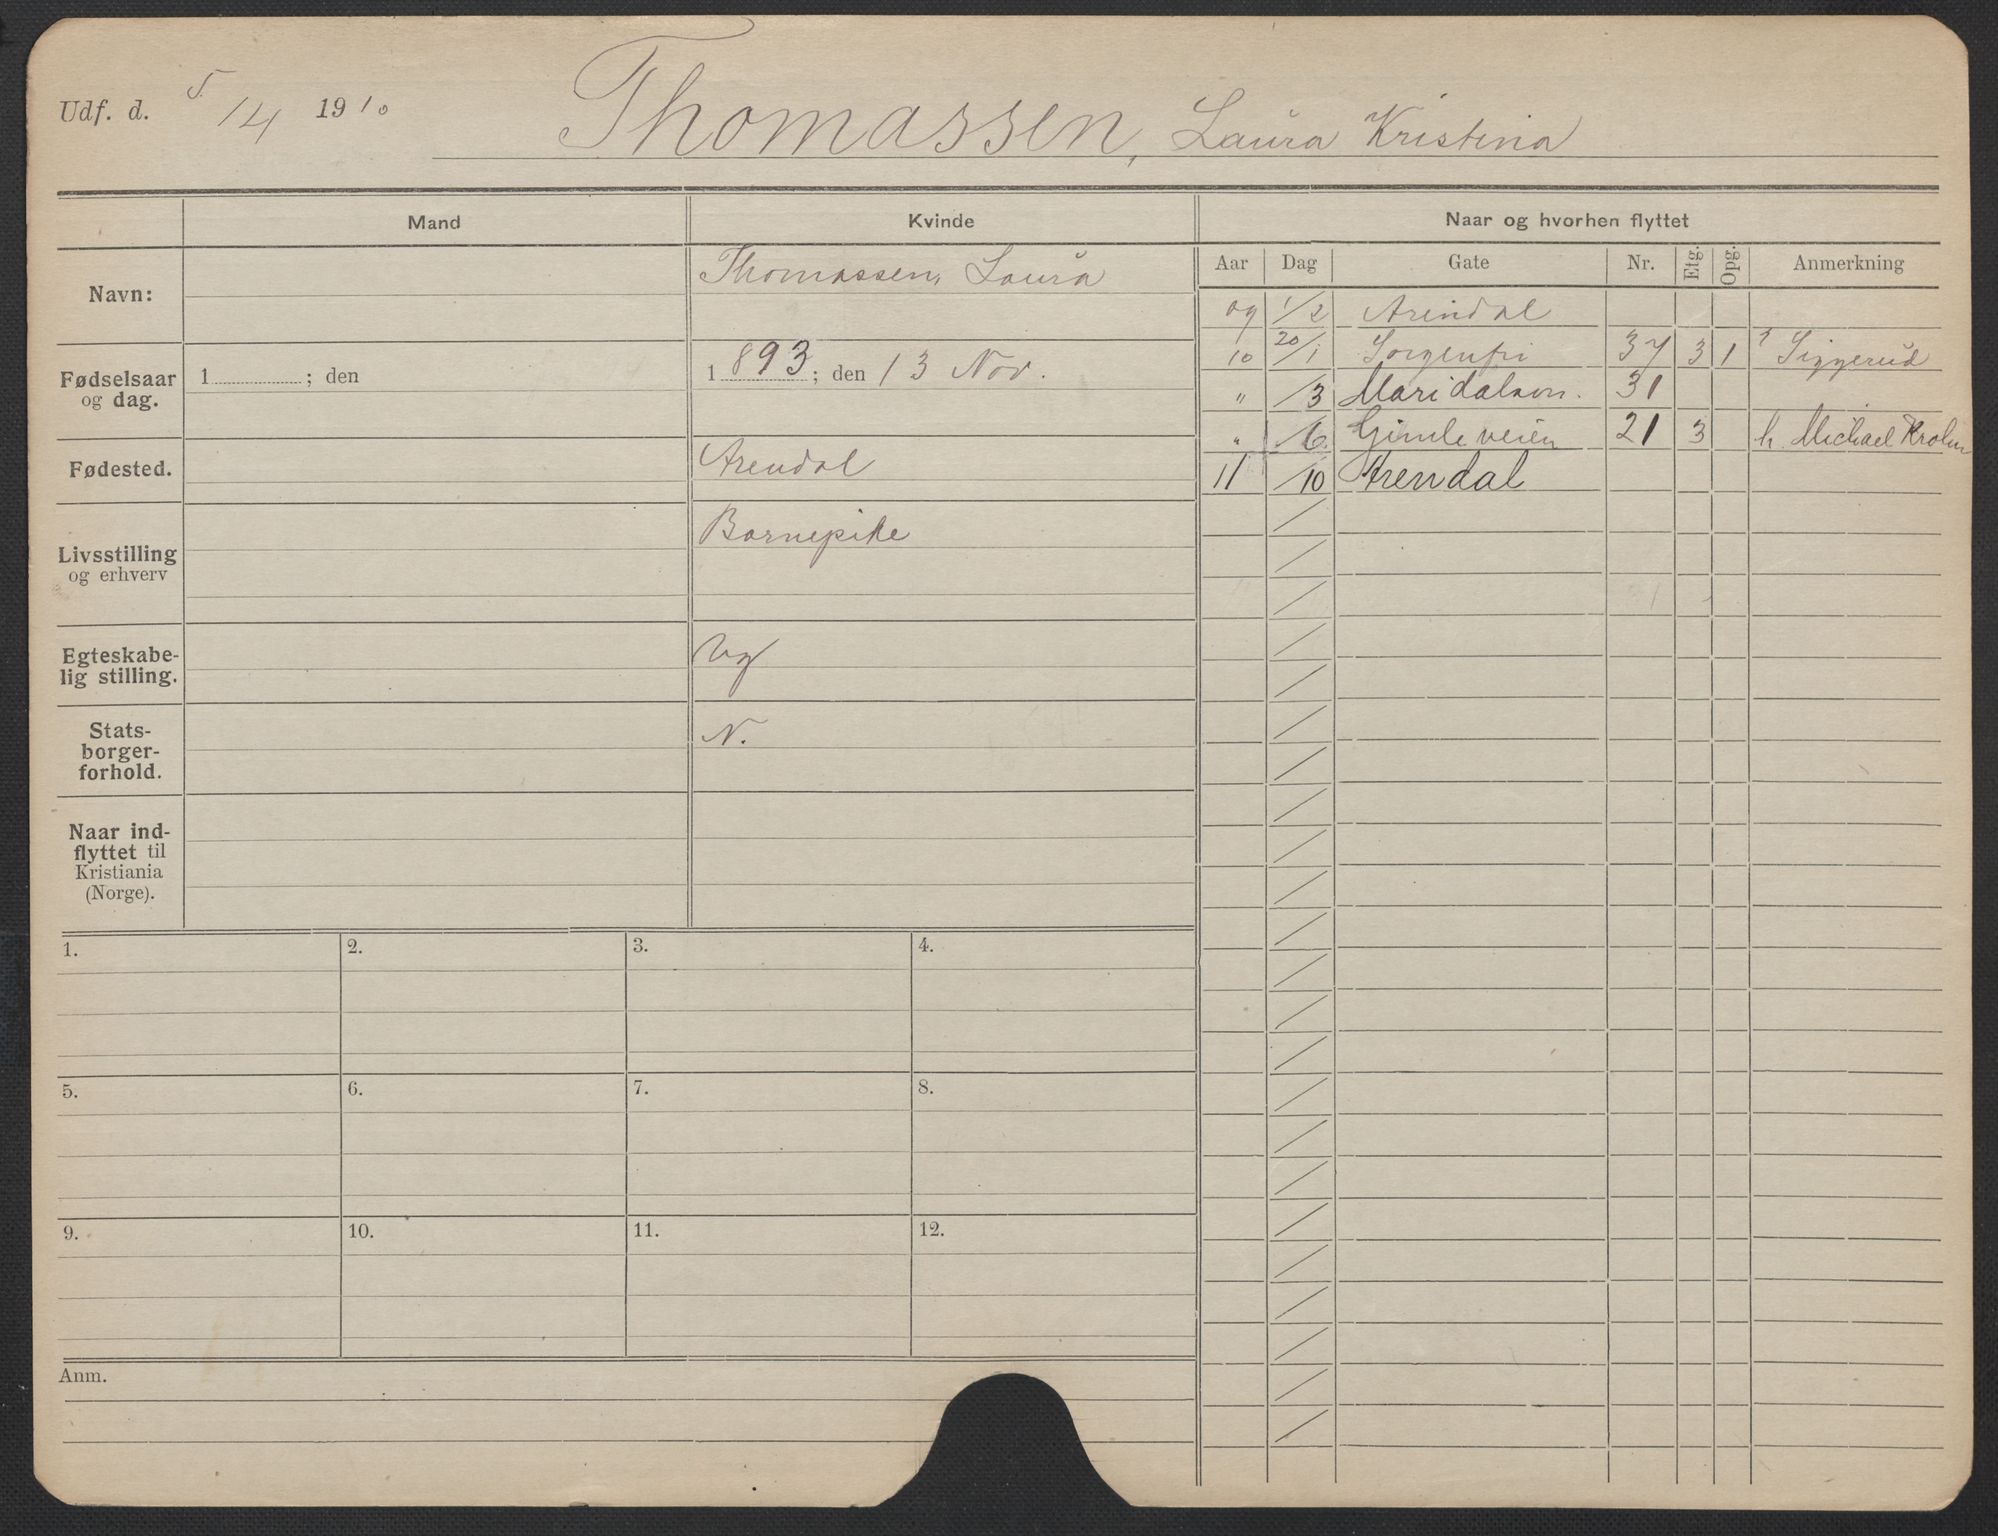 Udf. d. 5/4 1910 Thomassen, Laura Kristina
Mand Kvinde Naar og hvorhen flyttet
Aar Dag Gate Nr. Etg. Opg. Anmerkning
Navn: Thomassen, Laura
Fødselsaar og dag. 1 ; den 1893; den 13 Nov.
Fødested. Arendal
Livsstilling og erhverv Barnepike
Egteskabe-
lig stilling. Ug
Stats-
borger-
forhold. N.
Naar ind-
flyttet til
Kristiania
(Norge).
09 1/2 Arendal
10 20/1 Sorgenfri 37 3 1 Siggerud
" /3 Maridalsvn. 31
" /6 Gimle veien 21 3 h. Michael Krohn
11 /10 Arendal
1. 2. 3. 4.
5. 6. 7. 8.
9. 10. 11. 12.
Anm.